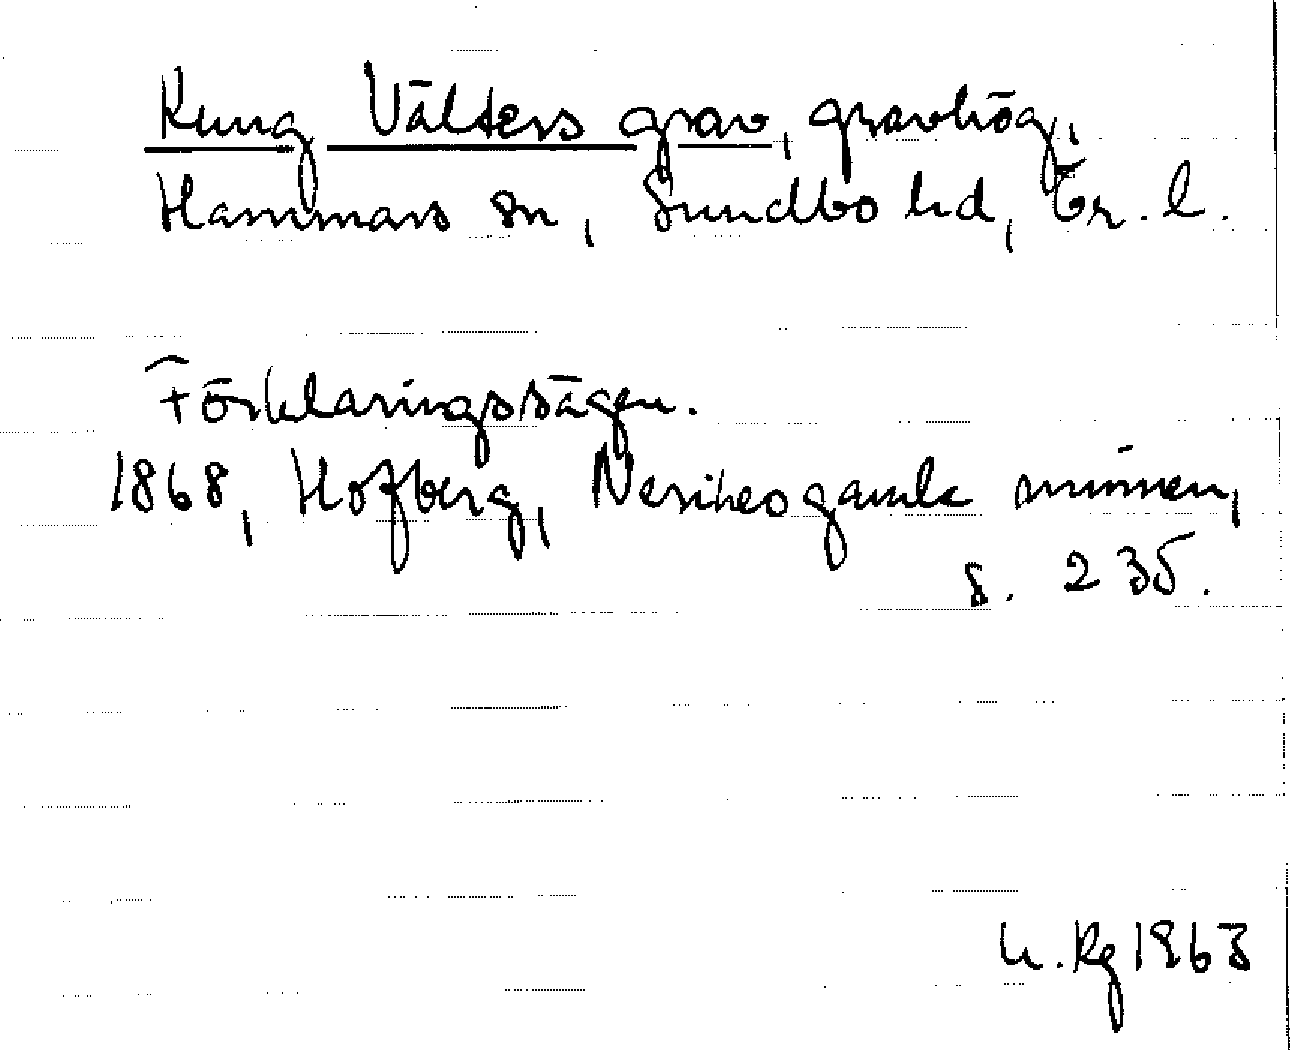 Kung Välters grav, gravhög,
Hammars sn, Sundbo hd, Ör. l.
Förklaringssägen.
1868, Hofberg, Nerikes gamla minnen,
s. 235.
Rg 1963